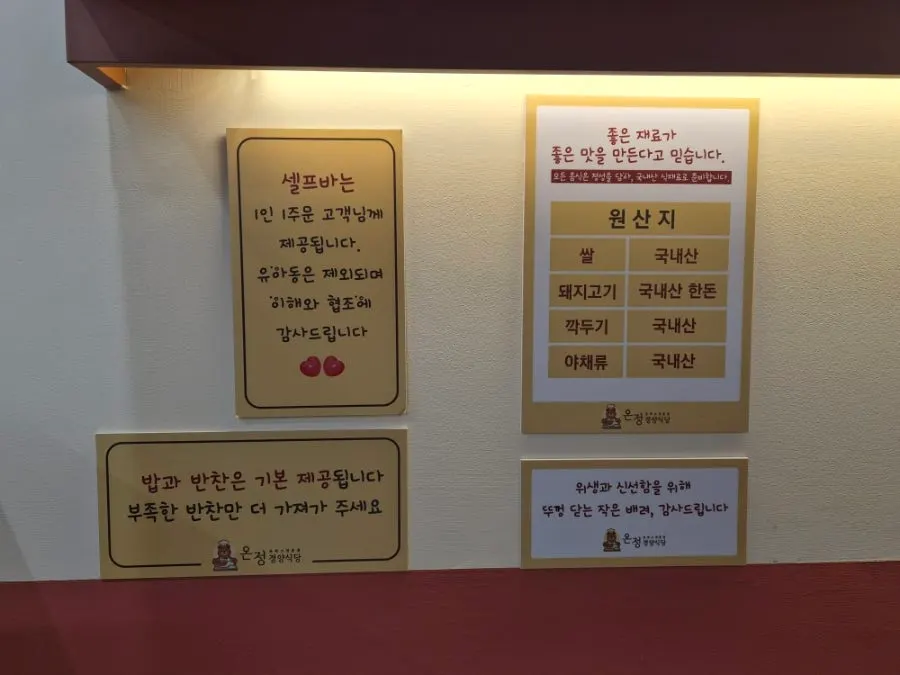 셀프바는
1인 1주문 고객님께
제공됩니다.
유아동은 제외되며
이해와 협조에
감사드립니다
밥과 반찬은 기본 제공됩니다
부족한 반찬만 더 가져가 주세요
온정
경양식당
좋은 재료가
좋은 맛을 만든다고 믿습니다.
모든 음식은 정성을 담아, 국내산 식재료로 준비합니다.
원산지
쌀 국내산
돼지고기 국내산 한돈
깍두기 국내산
야채류 국내산
온정
경양식당
위생과 신선함을 위해
뚜껑 닫는 작은 배려, 감사드립니다
온정
경양식당